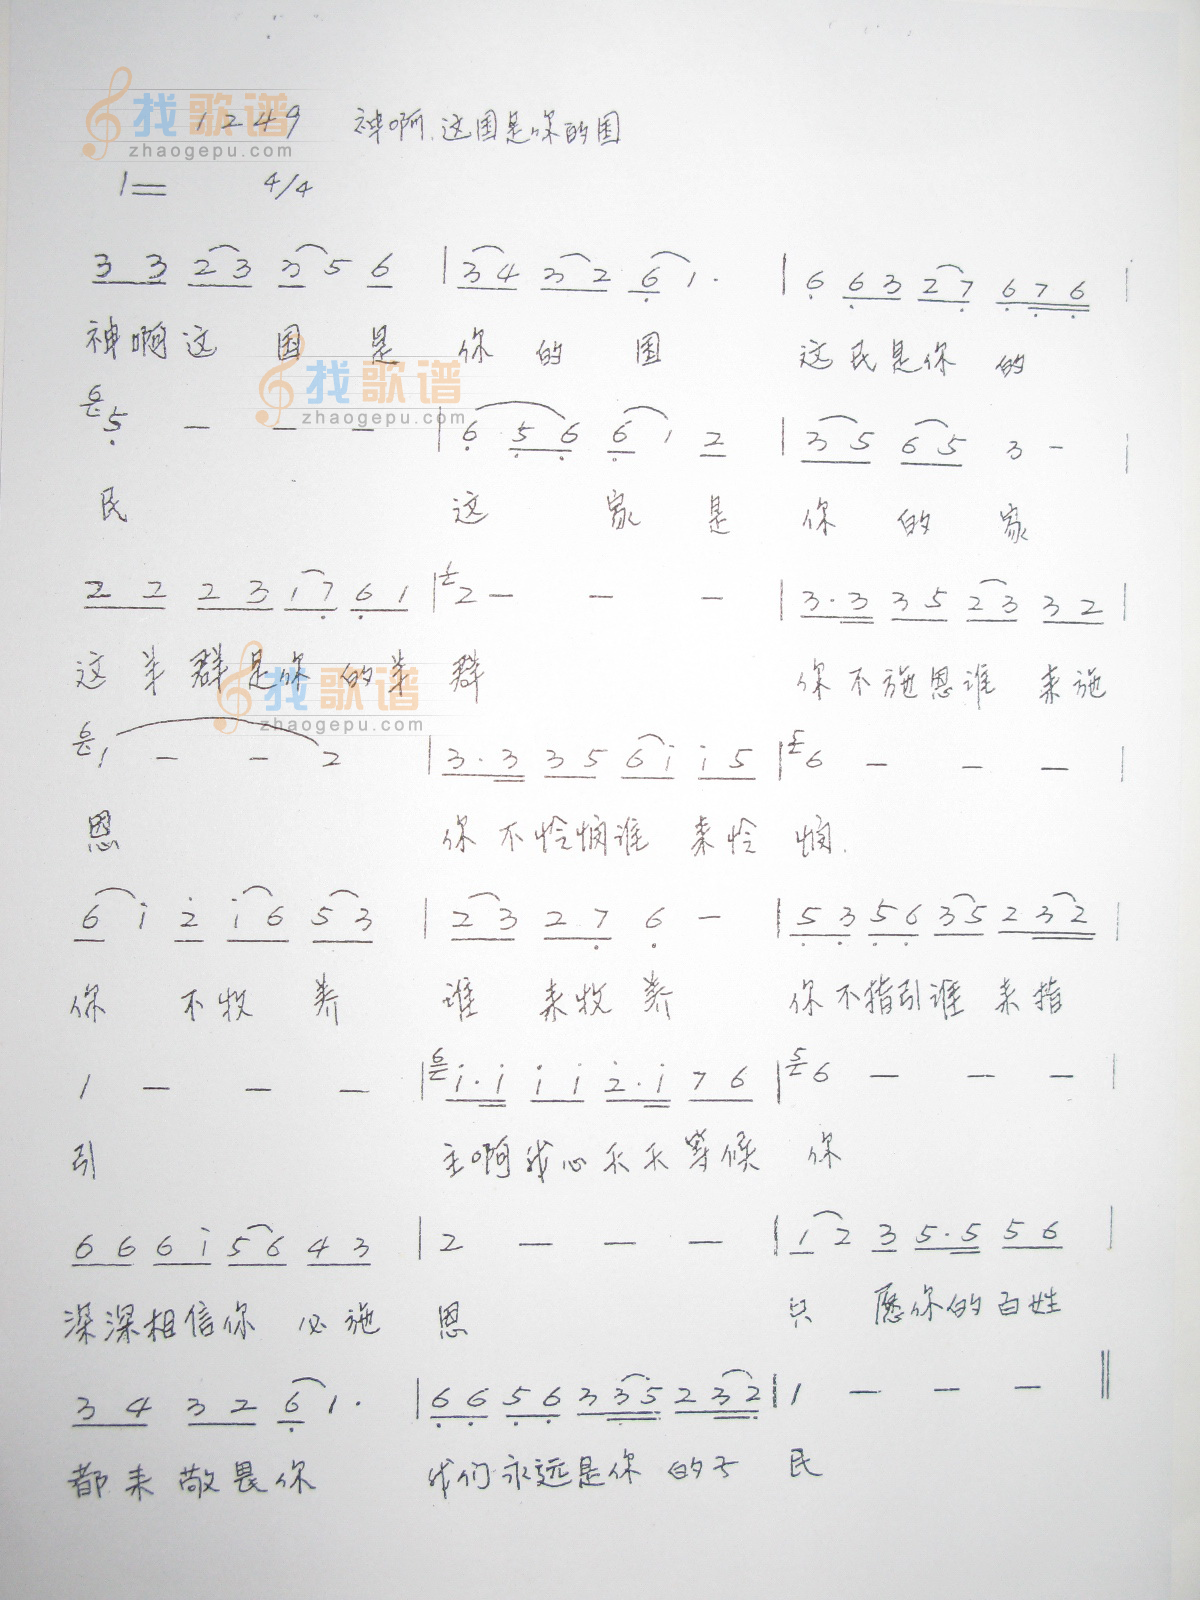 找歌谱
zhaogepu.com
1249 神啊.这国是你的国
1= 4/4
3 3 2 3 3 5 6 | 3 4 3 2 6 1 · | 6 6 3 2 7 6 7 6 |
神啊这 国 是 你 的 国 这民是你 的
找歌谱
zhaogepu.com
6 5 — — — | 6 5 6 6 1 2 | 3 5 6 5 3 — |
民 这 家 是 你 的 家
2 2 2 3 1 7 6 1 | 1 2 — — — | 3 · 3 3 5 2 3 3 2 |
这羊群是你 的羊 群 你不施恩谁 来施
找歌谱
zhaogepu.com
6 1 — — 2 | 3 · 3 3 5 6 i i 5 | 5 6 — — — |
恩 你不怜悯谁 来怜 悯.
6 i 2 i 6 5 3 | 2 3 2 7 6 — | 5 3 5 6 3 5 2 3 2 |
你 不牧 养 谁 来牧 养 你不指引谁 来指
1 — — — | 6 i · i i i 2 · i 7 6 | 5 6 — — — |
引 主啊我心天天等候 你
6 6 6 i 5 6 4 3 | 2 — — — | 1 2 3 5 · 5 5 6 |
深深相信你 必施 恩 只 愿你的百姓
3 4 3 2 6 1 · | 6 6 5 6 3 3 5 2 3 2 | 1 — — — ‖
都来敬畏你 我们永远是你 的子 民